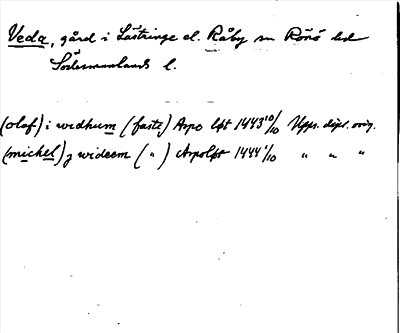 Veda, gård i Lästringe el. Råby sn Rönö hd
Södermanlands l.
(olof) i widhum (faste) Aspo löt 1443 10/10 Upps. dipl. orig.
(michel) j wideem ( " ) Aspoløt 1444 1/10 " " "